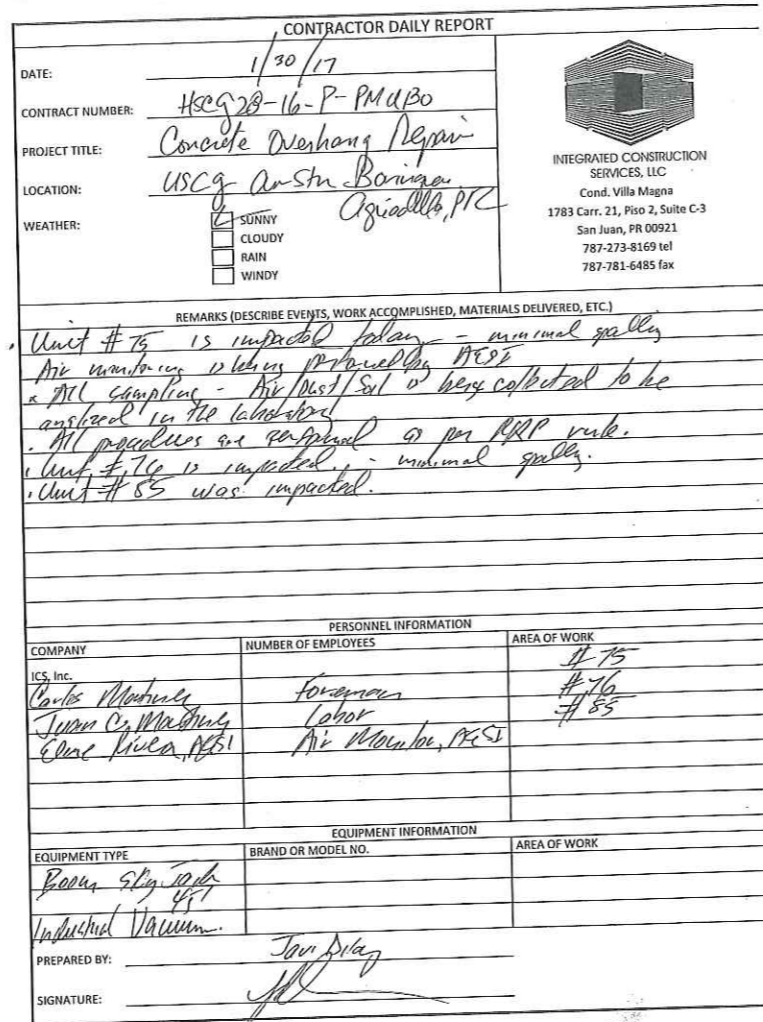 CONTRACTOR DAILY REPORT
DATE: 1/30/17
CONTRACT NUMBER: HSCG28-16-P-PMUB0
PROJECT TITLE: Concrete Overhang Repair
LOCATION: USCG Borinquen
Aguadilla, PR
WEATHER: SUNNY
CLOUDY
RAIN
WINDY
INTEGRATED CONSTRUCTION
SERVICES, LLC
Cond. Villa Magna
1783 Carr. 21, Piso 2, Suite C-3
San Juan, PR 00921
787-273-8169 tel
787-781-6485 fax
REMARKS (DESCRIBE EVENTS, WORK ACCOMPLISHED, MATERIALS DELIVERED, ETC.)
. Unit # 75 is impacted today - minimal
Air monitoring is being by AESI
All sampling - Air/Dust/Soil is being collected to be
in the laboratory
. All procedures are as per RRP rule.
. Unit # 76 is impacted. - minimal
. Unit # 85 was impacted.
PERSONNEL INFORMATION
COMPANY NUMBER OF EMPLOYEES AREA OF WORK
ICS, Inc. # 75
Carlos Foreman # 76
Juan C. Labor # 85
AESI Air Monitor, AESI
EQUIPMENT INFORMATION
EQUIPMENT TYPE BRAND OR MODEL NO. AREA OF WORK
Boom
45'
Industrial Vacuum.
PREPARED BY: Javi
SIGNATURE: